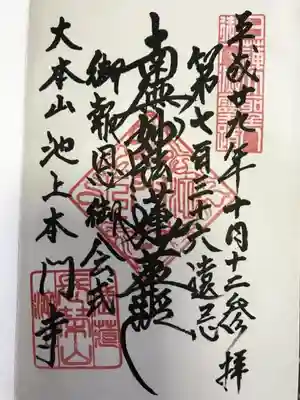 平成廿九年十月十二日参拝
第七百三十六遠忌
南無妙法蓮華経
御報恩御会式
大本山池上本門寺